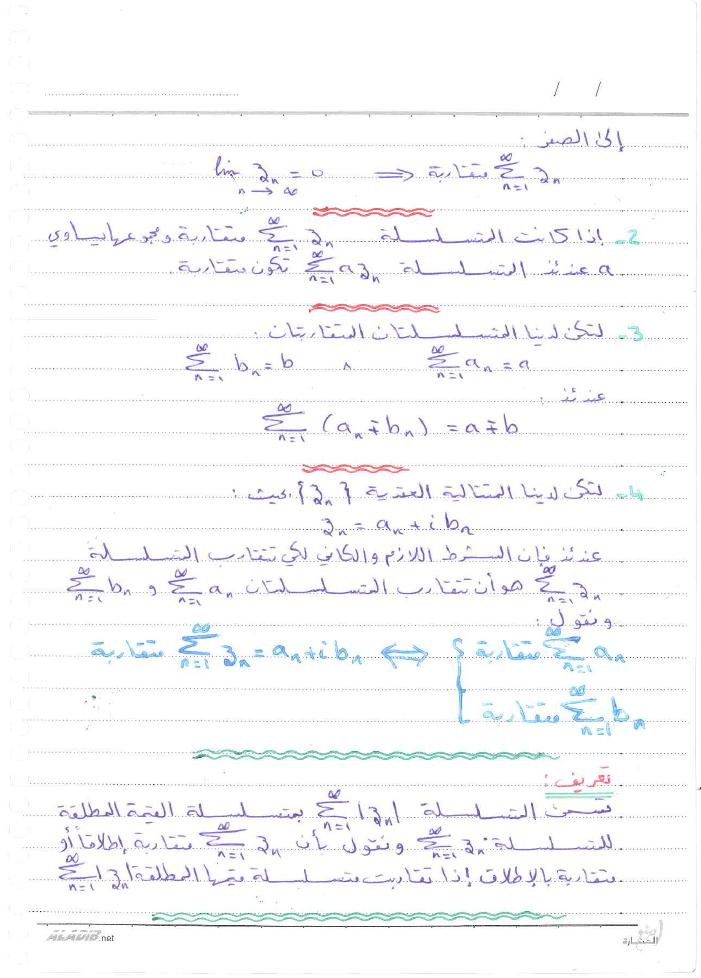 / /
إلى الصفر :
$\sum_{n=1}^{\infty} z_n$ متقاربة $\Longrightarrow \lim_{n \to \infty} z_n = 0$
2- إذا كانت المتسلسلة $\sum_{n=1}^{\infty} z_n$ متقاربة ومجموعها يساوي
a عندئذ المتسلسلة $\sum_{n=1}^{\infty} a z_n$ تكون متقاربة.
3- لتكن لدينا المتسلسلتان المتقاربتان :
$\sum_{n=1}^{\infty} a_n = a$ ∧ $\sum_{n=1}^{\infty} b_n = b$
عندئذ :
$\sum_{n=1}^{\infty} (a_n \mp b_n) = a \mp b$
4- لتكن لدينا المتتالية العقدية $\{z_n\}$ بحيث :
$z_n = a_n + i b_n$
عندئذ فإن الشرط اللازم والكافي لكي تتقارب المتسلسلة
$\sum_{n=1}^{\infty} z_n$ هو أن تتقارب المتسلسلتان $\sum_{n=1}^{\infty} a_n$ و $\sum_{n=1}^{\infty} b_n$
ونقول :
$\begin{cases} \sum_{n=1}^{\infty} a_n \text{ متقاربة} \\ \sum_{n=1}^{\infty} b_n \text{ متقاربة} \end{cases} \Longleftrightarrow \sum_{n=1}^{\infty} z_n = a_n + i b_n$ متقاربة
تعريف :
نسمي المتسلسلة $\sum_{n=1}^{\infty} |z_n|$ بمتسلسلة القيمة المطلقة
للمتسلسلة $\sum_{n=1}^{\infty} z_n$ ونقول بأن $\sum_{n=1}^{\infty} z_n$ متقاربة إطلاقاً أو
متقاربة بالإطلاق إذا تقاربت متسلسلة قيمها المطلقة $\sum_{n=1}^{\infty} |z_n|$
ALADIB.net
المختارة